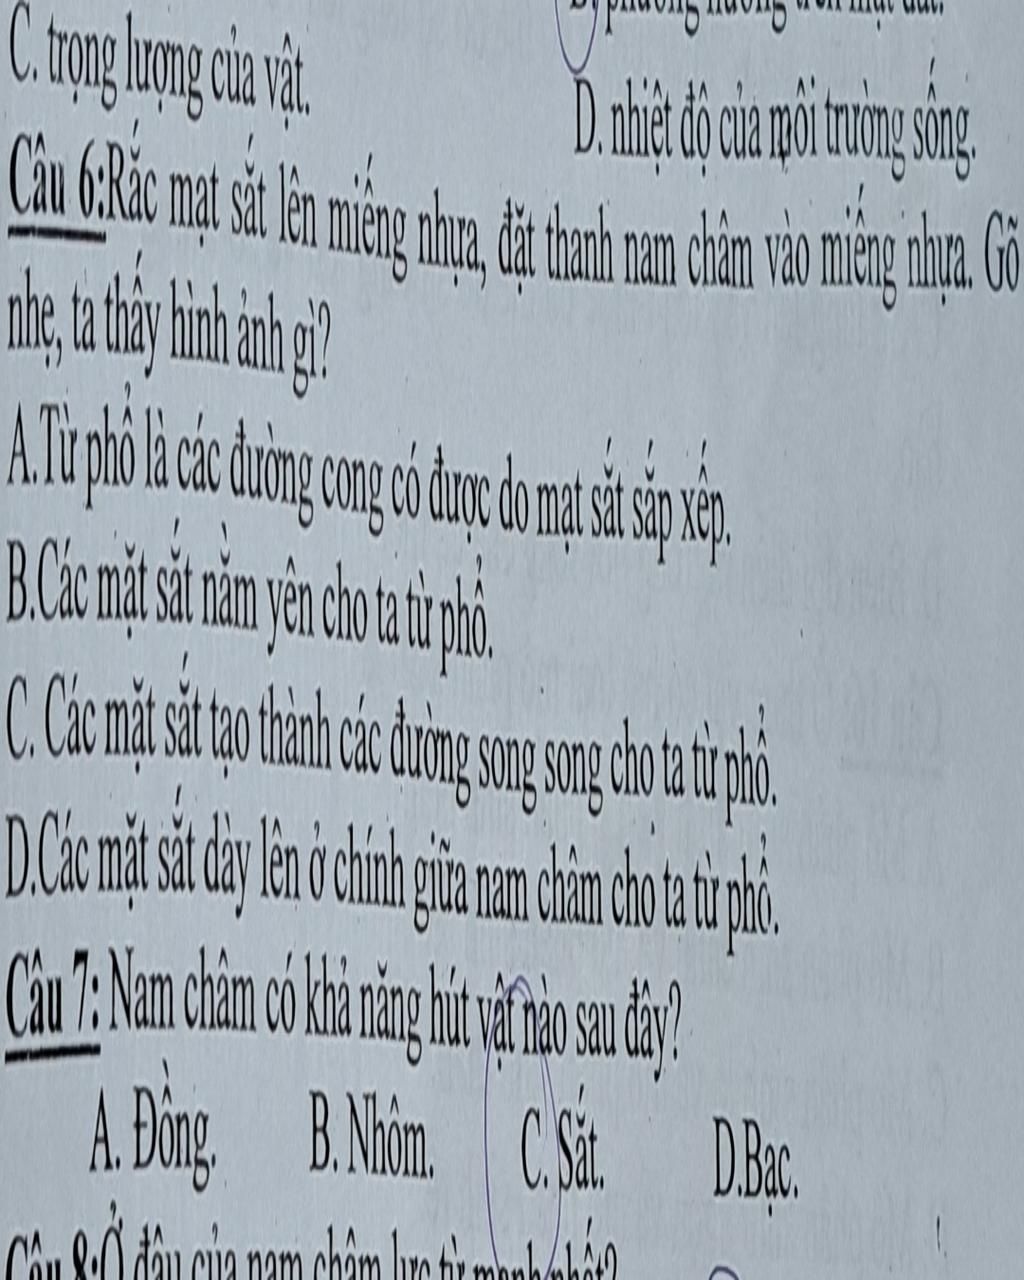 C. trọng lượng của vật.
D. nhiệt độ của môi trường sống.
Câu 6:Rắc mạt sắt lên miếng nhựa, đặt thanh nam châm vào miếng nhựa. Gõ
nhẹ, ta thấy hình ảnh gì?
A.Từ phổ là các đường cong có được do mạt sắt sắp xếp.
B.Các mặt sắt nằm yên cho ta từ phổ.
C. Các mặt sắt tạo thành các đường song song cho ta từ phổ.
D.Các mặt sắt dày lên ở chính giữa nam châm cho ta từ phổ.
Câu 7: Nam châm có khả năng hút vật nào sau đây?
A. Đồng. B. Nhôm. C. Sắt. D.Bạc.
Câu 8:Ở đâu của nam châm lực từ mạnh nhất?